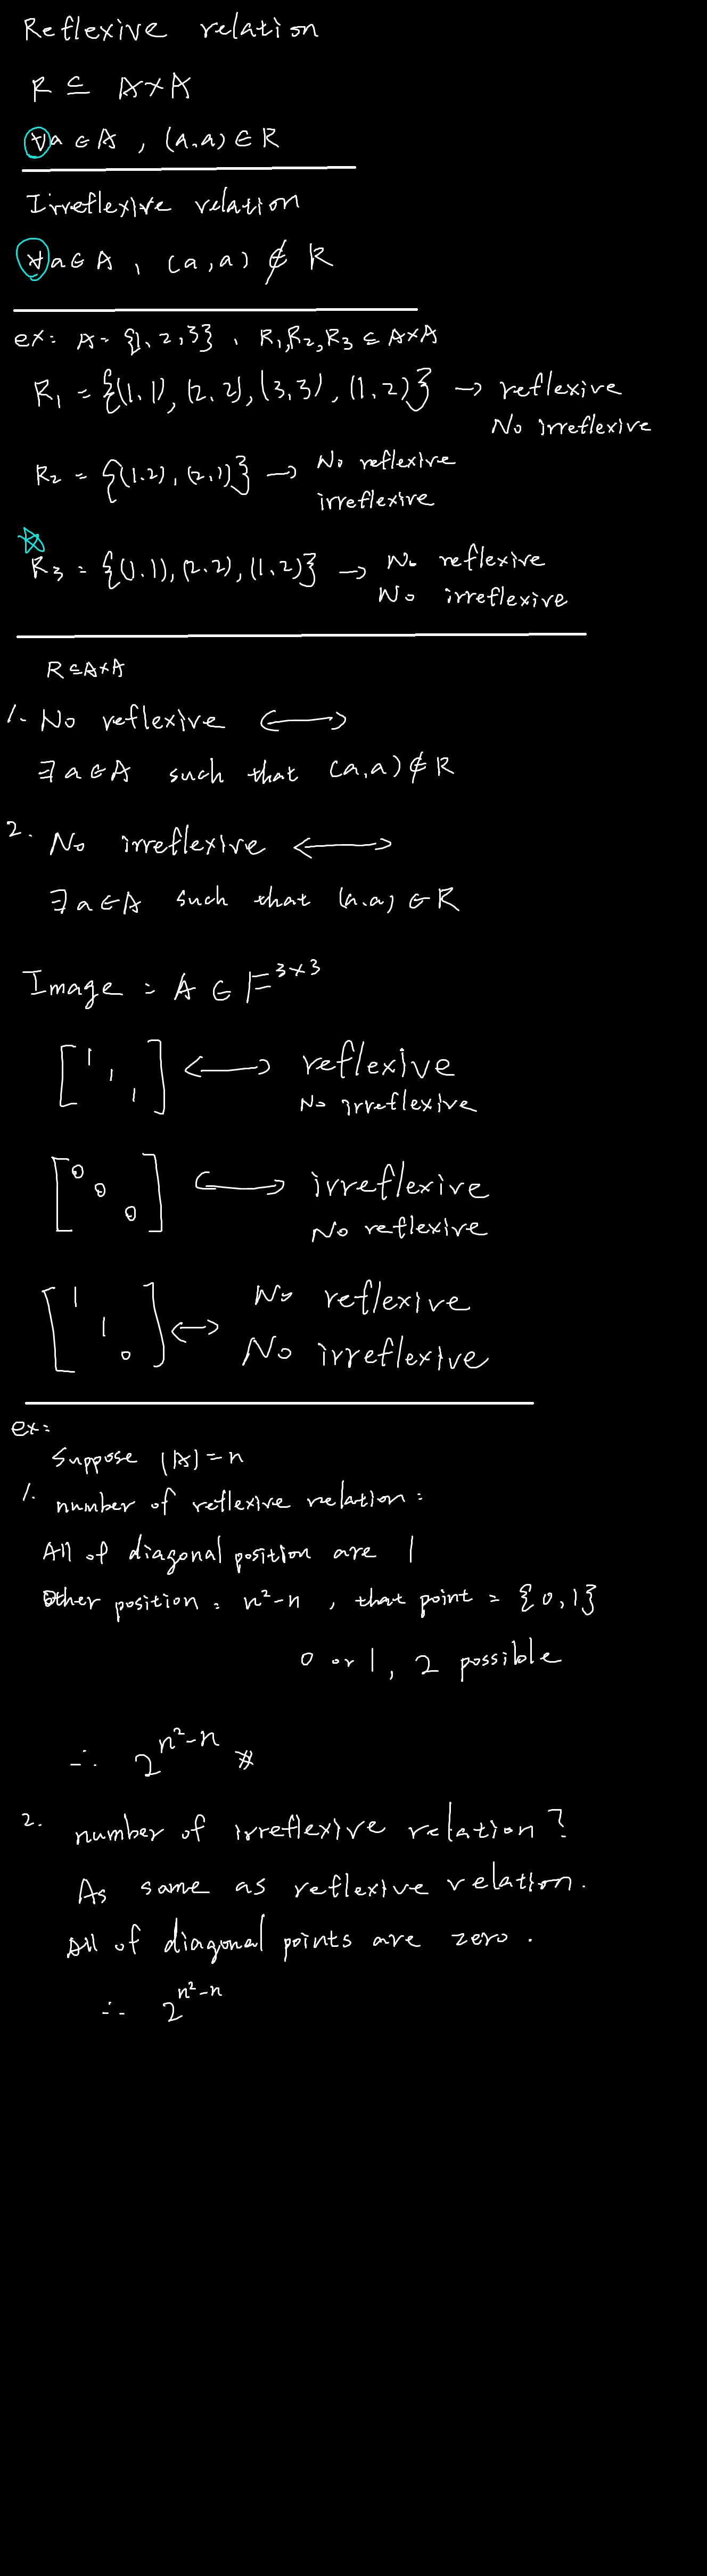 Reflexive relation
R ⊆ A×A
∀a ∈ A , (a,a) ∈ R
Irreflexive relation
∀a ∈ A , (a,a) ∉ R
ex: A = {1,2,3} , R₁,R₂,R₃ ⊆ A×A
R₁ = {(1,1), (2,2), (3,3), (1,2)} → reflexive
No irreflexive
R₂ = {(1,2), (2,1)} → No reflexive
irreflexive
☆
R₃ = {(1,1), (2,2), (1,2)} → No reflexive
No irreflexive
R ⊆ A×A
1. No reflexive ⟷
∃ a ∈ A such that (a,a) ∉ R
2. No irreflexive ⟷
∃ a ∈ A such that (a,a) ∈ R
Image = A ∈ F^3×3
[1 1 1] ⟷ reflexive
No irreflexive
[0 0 0] ⟷ irreflexive
No reflexive
[1 1 0] ⟷ No reflexive
No irreflexive
ex:
Suppose |A| = n
1. number of reflexive relation :
All of diagonal position are 1
Other position : n²-n , that point = {0,1}
0 or 1, 2 possible
∴ 2^n²-n #
2. number of irreflexive relation ?
As same as reflexive relation.
All of diagonal points are zero .
∴ 2^n²-n